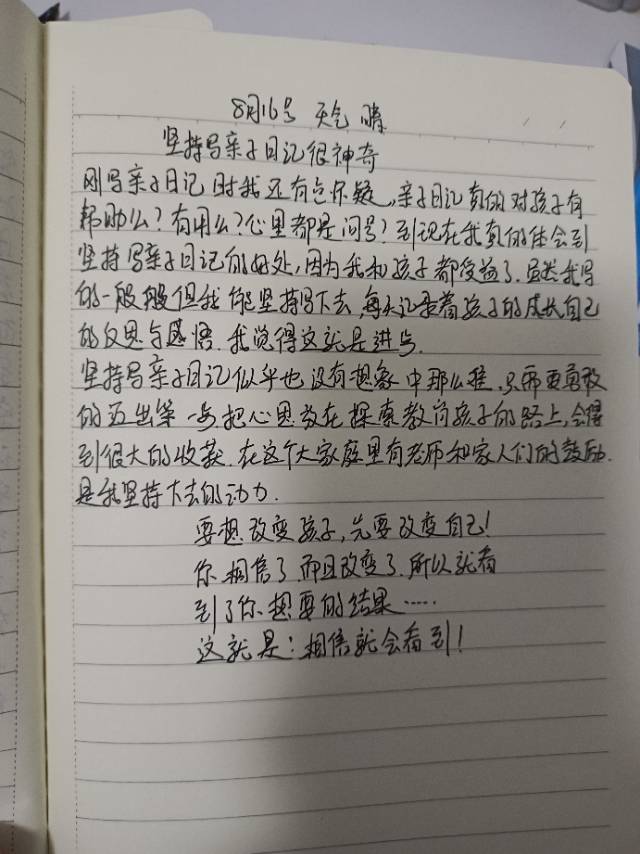 8月16号 天气 晴
坚持写亲子日记很神奇
刚写亲子日记时我还有点怀疑,亲子日记真的对孩子有
帮助么?有用么?心里都是问号?到现在我真的体会到
坚持写亲子日记的好处,因为我和孩子都受益了.虽然我写
的一般般但我能坚持写下去,每天记录着孩子的成长自己
的反思与感悟.我觉得这就是进步.
坚持写亲子日记似乎也没有想象中那么难.只需要勇敢
的迈出第一步把心思放在探索教育孩子的路上,会得
到很大的收获.在这个大家庭里有老师和家人们的鼓励.
是我坚持下去的动力.
要想改变孩子,先要改变自己!
你相信了而且改变了.所以就看
到了你想要的结果……
这就是:相信就会看到!